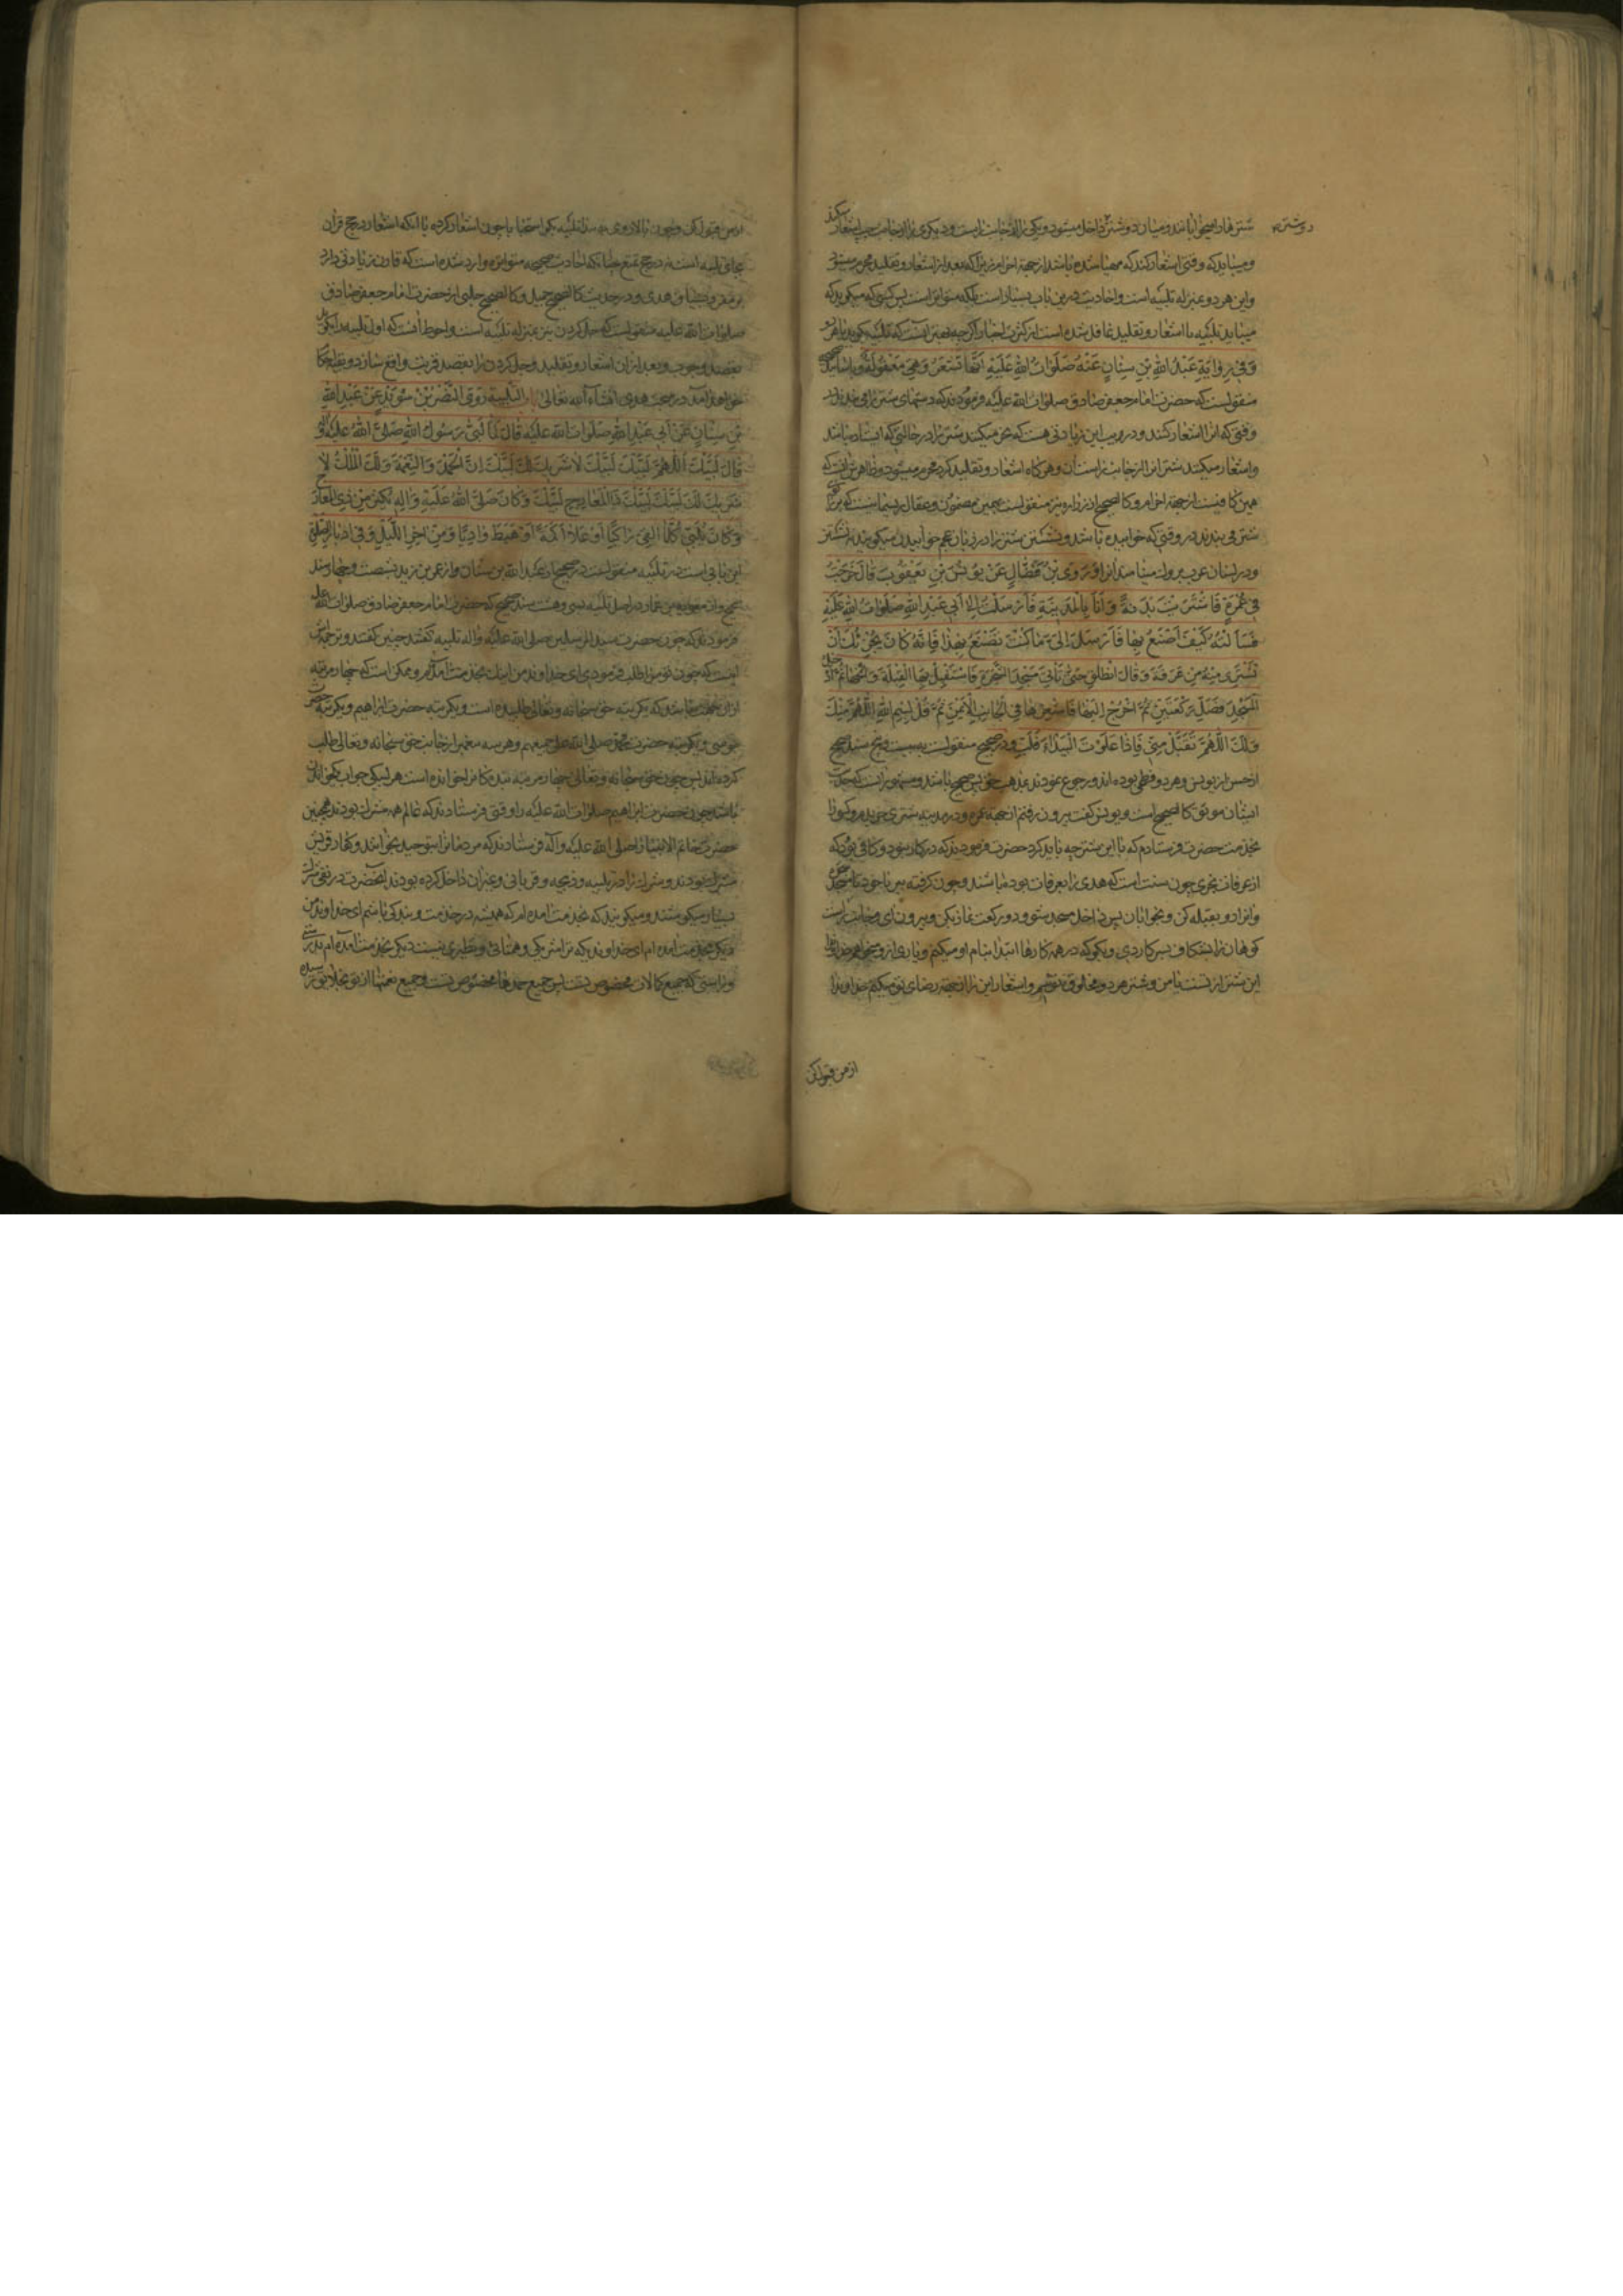 شترها را میخوابانند و میان دو شتر داخل میشود و یکی را از جانب راست و دیگری را از جانب چپ اشعار میکند
دو شتر
و میباید که وقتی اشعار کند که مهیا شده باشد از جهة احرام زیرا که بعد از اشعار و تقلید محرم میشود
و این هر دو بمنزله تلبیه است و احادیث درین باب بسیار است بلکه متواتر است پس کسی که میگوید که
میباید تلبیه با اشعار و تقلید غافل شده است از کثرت اخبار اگرچه بهتر آنست که تلبیه بگوید با هر دو
وَفِي رِوَايَةِ عَبْدِ اللهِ بْنِ سِنَانٍ عَنْهُ صَلَوَاتُ اللهِ عَلَيْهِ أَنَّهَا تُشْعَرُ وَهِيَ مَعْقُولَةٌ و باسانید صحیحه
منقولست که حضرت امام جعفر صادق صلوات الله علیه فرمودند که دستهای شتر را می بندند
وقتی که انرا اشعار کنند و در این زیادتی هست که نحر میکنند شتر را در حالتی که ایستاده باشد
و اشعار میکنند شتر را از جانب راست آن و هر گاه اشعار و تقلید کرد محرم میشود و ظاهرش آنست که
همین کافیست از جهة احرام و کالصحیح از زراره نیز منقولست بهمین مضمون و عقال ریسمانیست که بر پای
شتر می بندند در وقتی که خوابیده باشد و شتر را در زبان عجم خوابیدن میگویند
و در لسان عرب بروك مینامند انرا وَرَوَى ابْنُ فَضَّالٍ عَنْ يُونُسَ بْنِ يَعْقُوبَ قَالَ خَرَجْتُ
فِي عُمْرَةٍ فَاشْتَرَيْتُ بَدَنَةً وَأَنَا بِالْمَدِينَةِ فَأَرْسَلْتُ إِلَى أَبِي عَبْدِ اللهِ صَلَوَاتُ اللهِ عَلَيْهِ
فَسَأَلْتُهُ كَيْفَ أَصْنَعُ بِهَا فَأَرْسَلَ إِلَيَّ مَا كُنْتَ تَصْنَعُ بِهَذَا فَإِنَّهُ كَانَ يُجْزِئُكَ أَنْ
تَشْتَرِيَ مِنْهُ مِنْ عَرَفَةَ وَقَالَ انْطَلِقْ حَتَّى تَأْتِيَ مَسْجِدَ الشَّجَرَةِ فَاسْتَقْبِلْ بِهَا الْقِبْلَةَ وَأَنِخْهَا ثُمَّ ادْخُلِ
الْمَسْجِدَ فَصَلِّ رَكْعَتَيْنِ ثُمَّ اخْرُجْ إِلَيْهَا فَأَشْعِرْهَا فِي الْجَانِبِ الْأَيْمَنِ ثُمَّ قُلْ بِسْمِ اللهِ اللَّهُمَّ مِنْكَ
وَلَكَ اللَّهُمَّ تَقَبَّلْ مِنِّي فَإِذَا عَلَوْتَ الْبَيْدَاءَ فَلَبِّ و در صحیح منقولست به بیست و پنج سند صحیح
از حسن از یونس و هر دو فطحی بوده اند و رجوع نموده اند بمذهب حق پس صحیح باشد و مشهور انست که حدیث
ایشان موثق کالصحیح است و یونس گفت بیرون رفتم از جهة عمره و در مدینه شتری خریدم و کسی را
بخدمت حضرت فرستادم که با این شتر چه باید کرد حضرت فرمودند که در کار نبود و کافی بود که
از عرفات بخری چون سنت است که هدی را بعرفات بوده باشند و چون گرفته ببر با خود تا مسجد شجره
و او را رو بقبله کن و بخوابان پس داخل مسجد شو و دو رکعت نماز بکن و بیرون آی و جانب راست
کوهان را بشکاف بسر کاردی و بگو که در همه کارها ابتدا بنام او میکنم و یاری از او میخواهم خداوندا
این شتر از تست یا من و شتر هر دو مخلوق توئیم و اشعار این را از جهة رضای تو میکنم خداوندا
از من قبول کن
از من قبول کن و چون بالا روی به بیدا تلبیه بگو استحبابا چون اشعار کرده با آنکه اشعار در حج قران
بجای تلبیه است نه در حج تمتع چنانکه احادیث صحیحه متواتره وارد شده است که قارن زیادتی دارد
بر مفرد بسیاق هدی و در حدیث کالصحیح جمیل و کالصحیح حلبی از حضرت امام جعفر صادق
صلوات الله علیه منقولست که جل کردن نیز بمنزله تلبیه است و احوط آنست که اول تلبیه را بگوید
بقصد وجوب و بعد از آن اشعار و تقلید و جل کردن را بقصد قربت واقع سازد و بقیه احکام
خواهد آمد در مبحث هدی انشاء الله تعالی باب التلبية رَوَى النَّضْرُ بْنُ سُوَيْدٍ عَنْ عَبْدِ اللهِ
بْنِ سِنَانٍ عَنْ أَبِي عَبْدِ اللهِ صَلَوَاتُ اللهِ عَلَيْهِ قَالَ لَمَّا لَبَّى رَسُولُ اللهِ صَلَّى اللهُ عَلَيْهِ وَآلِهِ
قَالَ لَبَّيْكَ اللَّهُمَّ لَبَّيْكَ لَبَّيْكَ لَا شَرِيكَ لَكَ لَبَّيْكَ إِنَّ الْحَمْدَ وَالنِّعْمَةَ لَكَ وَالْمُلْكَ لَا
شَرِيكَ لَكَ لَبَّيْكَ لَبَّيْكَ ذَا الْمَعَارِجِ لَبَّيْكَ وَكَانَ صَلَّى اللهُ عَلَيْهِ وَآلِهِ يُكْثِرُ مِنْ ذِي الْمَعَارِجِ
وَكَانَ يُلَبِّي كُلَّمَا لَقِيَ رَاكِبًا أَوْ عَلَا أَكَمَةً أَوْ هَبَطَ وَادِيًا وَمِنْ آخِرِ اللَّيْلِ وَفِي أَدْبَارِ الصَّلَوَاتِ
این بابی است در تلبیه منقولست در صحیح از عبد الله بن سنان و از عمر بن یزید بشصت و چهار سند
صحیح و از معویة بن عمار در اصل تلبیه بسی و هشت سند صحیح که حضرت امام جعفر صادق صلوات الله علیه
فرمودند که چون حضرت سید المرسلین صلی الله علیه و آله تلبیه گفتند چنین گفتند و ترجمه اش
اینست که چون تو مرا طلب فرمودی ای خداوند من اینك بخدمت آمدم و ممکن است که چهار مرتبه
از آن جهت باشد که یکمرتبه حق سبحانه و تعالی طلبیده است و یکمرتبه حضرت ابراهیم و یکمرتبه حضرت
موسی و یکمرتبه حضرت محمد صلی الله علی جمیعهم و هر سه پیغمبر از جانب حق سبحانه و تعالی طلب
کرده اند پس چون حق سبحانه و تعالی چهار مرتبه بندگانرا خوانده است هر لبیکی جواب یکخواندن
باشد چون حضرت ابراهیم صلوات الله علیه را وقتی فرستادند که عالم همه مشرك بودند همچنین
حضرت خاتم الانبیا را صلی الله علیه و آله فرستادند که مردمانرا بتوحید بخوانند و کفار قریش
مشرك بودند و شرك را در تلبیه و ذبیحه و قربانی و غیر آن داخل کرده بودند آنحضرت در نفی شرك
بسیار میکوشیدند و میگویند که بخدمت آمده ام که همیشه در خدمت و بندگی باشم ای خداوند من
دیگر بخدمت آمده ام ای خداوندیکه ترا شریکی و همتائی و نظیری نیست دیگر بخدمت آمده ام بدرستی
و راستی که جمیع کمالات مخصوص تست پس جمیع حمدها مخصوص تست و جمیع نعمتها از تو